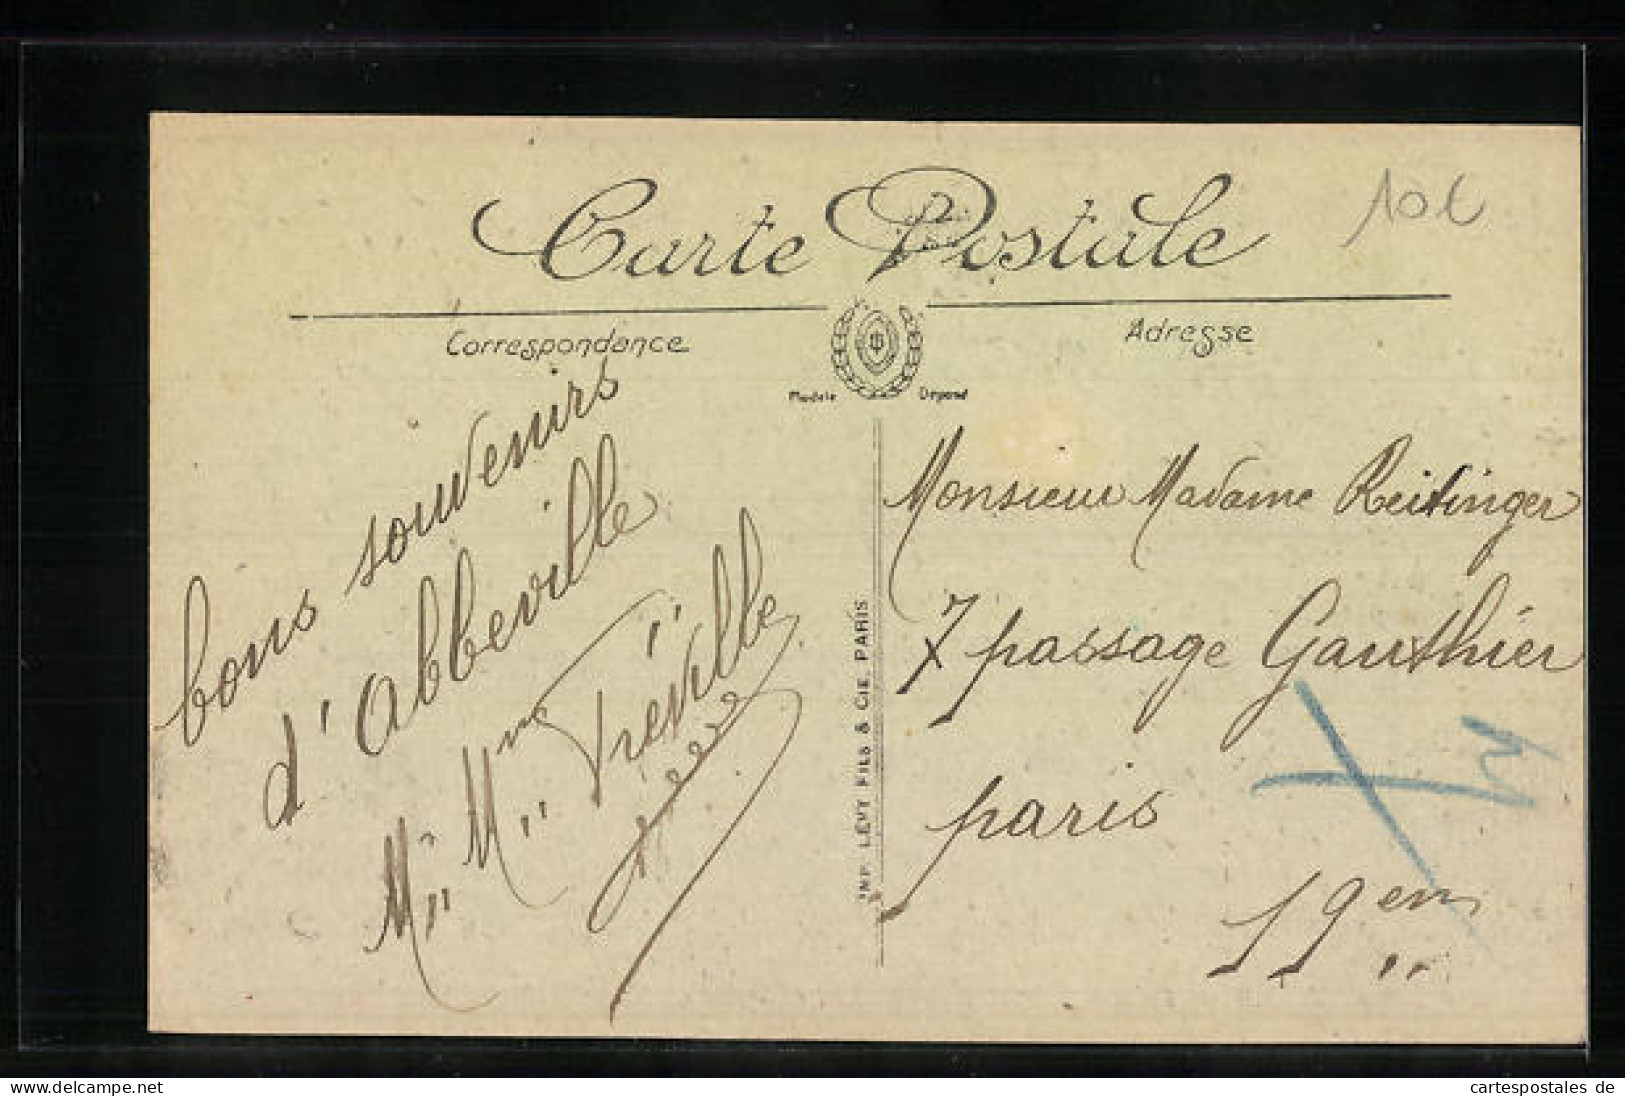 Carte Postale
10€
Correspondance
Adresse
Modèle Déposé
bons souvenirs
d'Abbeville
M,, Mme,, Tréville
IMP. LÉVY FILS & CIE. PARIS
Monsieur Madame Reitinger
7 passage Gauthier
paris
19em
cartespostales de